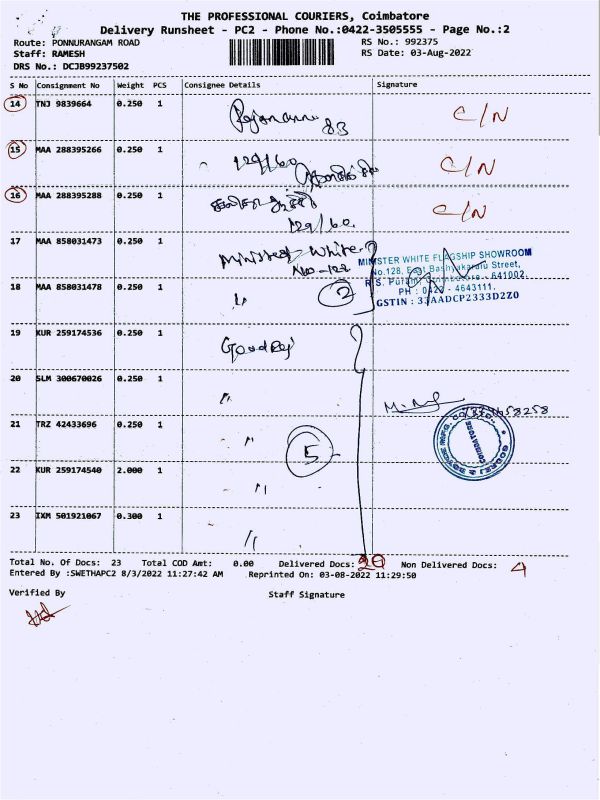 THE PROFESSIONAL COURIERS, Coimbatore
Delivery Runsheet - PC2 - Phone No.:0422-3505555 - Page No.:2
Route: PONNURANGAM ROAD RS No.: 992375
Staff: RAMESH RS Date: 03-Aug-2022
DRS No.: DCJB99237502
S No Consignment No Weight PCS Consignee Details Signature
14 TNJ 9839664 0.250 1 83 C/N
15 MAA 288395266 0.250 1 129/60 C/N
16 MAA 288395288 0.250 1 129/60 C/N
17 MAA 858031473 0.250 1 Minister White
No-122
MINISTER WHITE FLAGSHIP SHOWROOM
No.128, East Bashyakaralu Street,
R.S. Puram, Coimbatore - 641002.
PH : 0422 - 4643111.
GSTIN : 33AADCP2333D2Z0
18 MAA 858031478 0.250 1 " 2
19 KUR 259174536 0.250 1 Goodrej
20 SLM 300670026 0.250 1 "
21 TRZ 42433696 0.250 1 " 5
GODREJ & BOYCE MFG. CO. LTD.
COIMBATORE
22 KUR 259174540 2.000 1 "
23 IXM 501921067 0.300 1 "
Total No. Of Docs: 23 Total COD Amt: 0.00 Delivered Docs: Non Delivered Docs: 4
Entered By :SWETHAPC2 8/3/2022 11:27:42 AM Reprinted On: 03-08-2022 11:29:50
Verified By Staff Signature